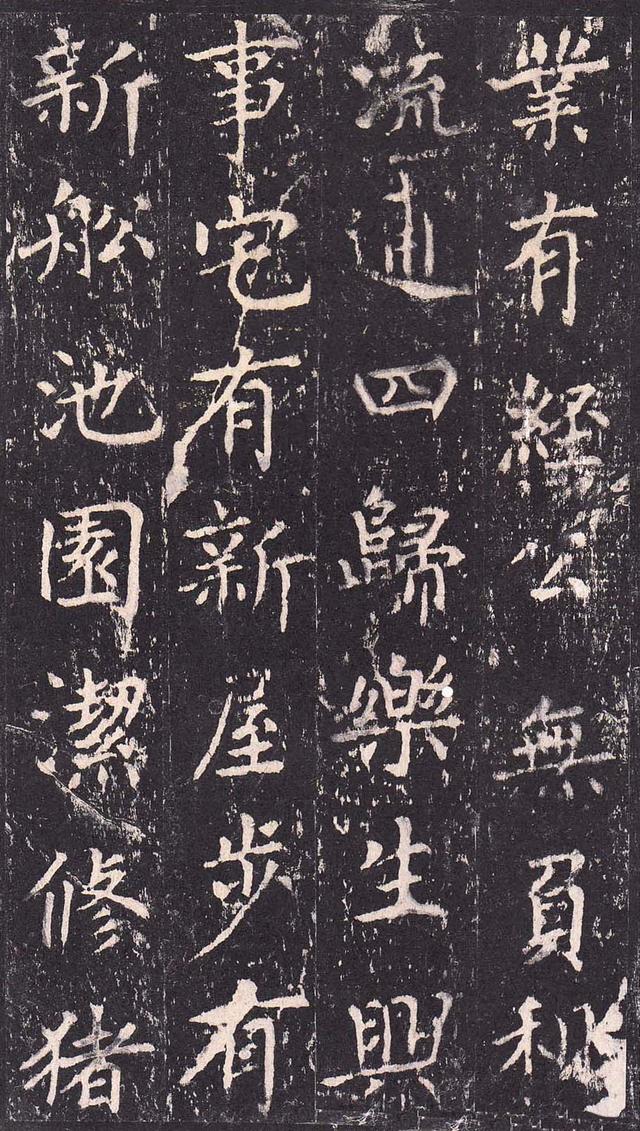 業有經公無負租
流逋四歸樂生興
事宅有新屋步有
新舩池園潔修猪